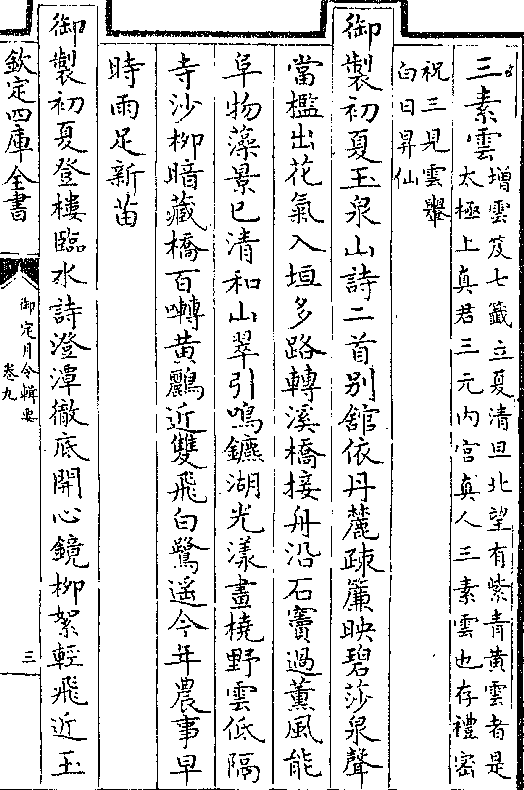 三素雲增雲笈七籖立夏清旦北望有紫青黄雲者是
太極上真君三元内宫真人三素雲也存禮密
祝三見雲轝
白日昇仙
御製初夏玉泉山詩二首别舘依丹麓疎簾映碧莎泉聲
當檻出花氣入垣多路轉溪橋接舟沿石竇過薰風能
阜物藻景已清和山翠引鳴鑣湖光漾畫橈野雲低隔
寺沙栁暗藏橋百囀黄鸝近雙飛白鷺遥今年農事早
時雨足新苗
御製初夏登樓臨水詩澄潭徹底開心鏡栁絮輕飛近玉
欽定四庫全書
御定月令輯要
卷九
三